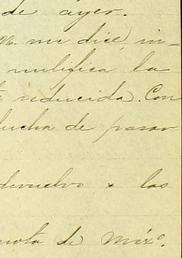 de ayer.
me dice, in-
mulifica la
reducida. Con
lucha de pasar
devuelvo x las
nota de Méxº.